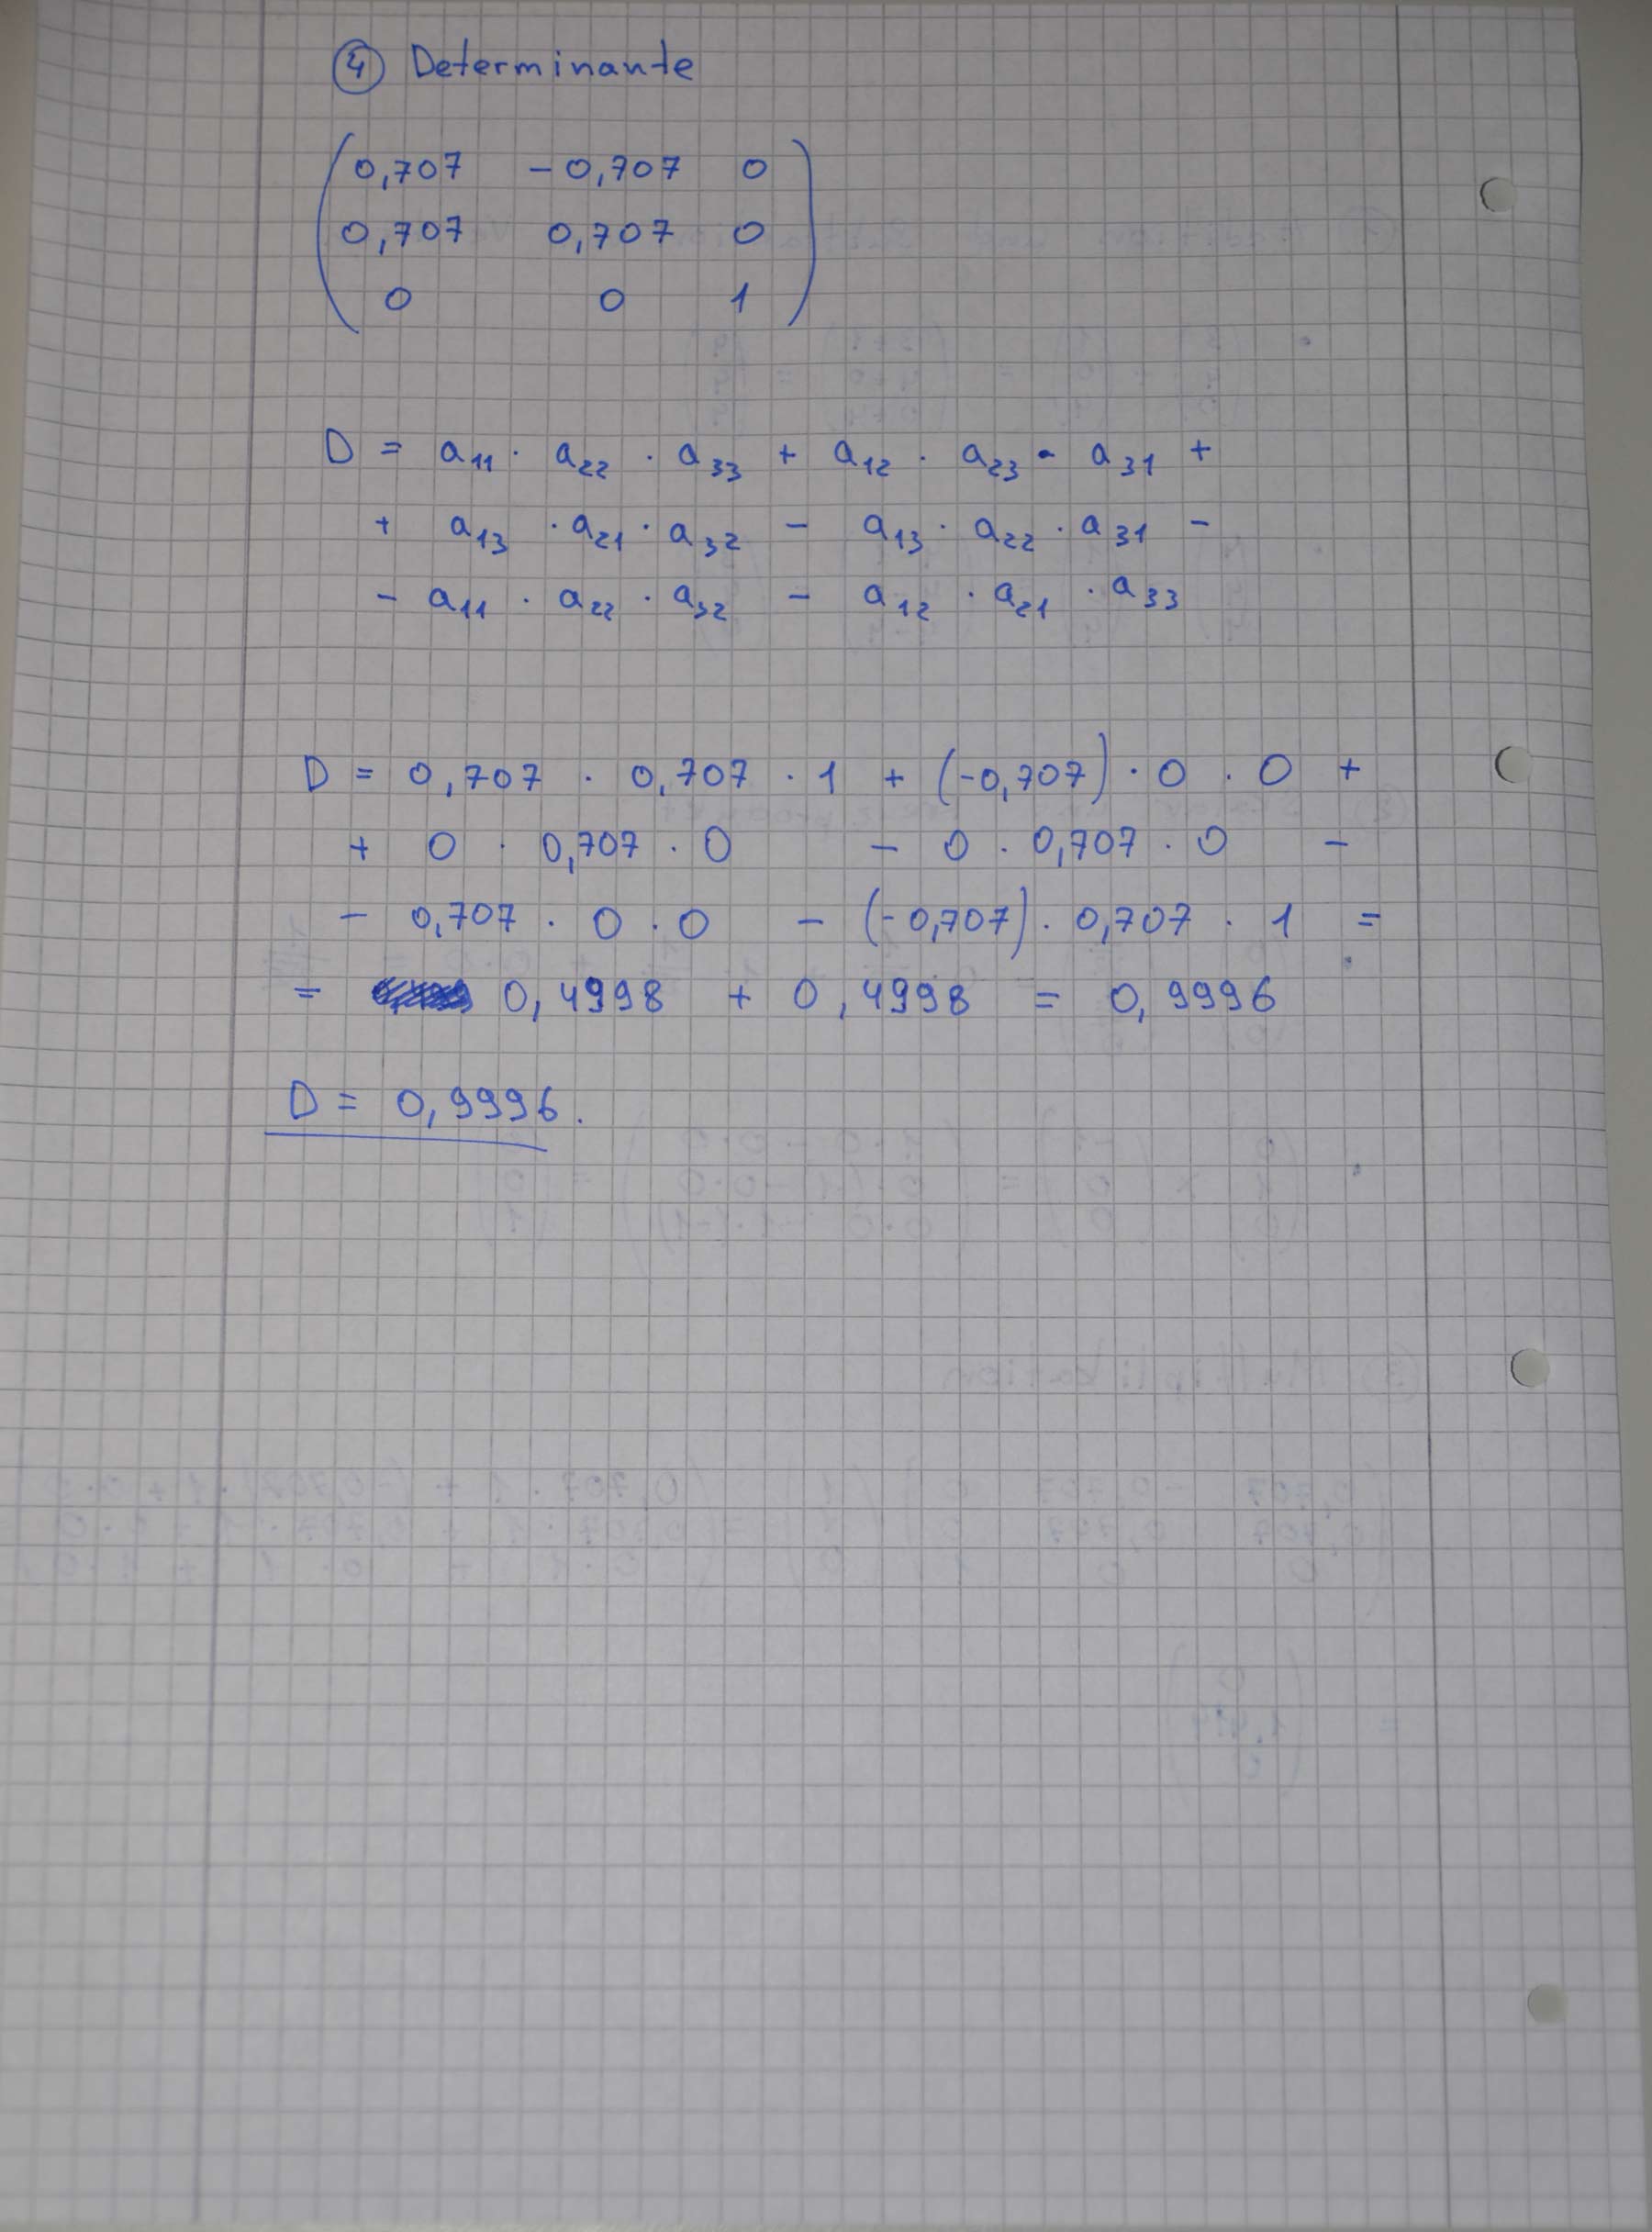 ④ Determinante
0,707 -0,707 0
0,707 0,707 0
0 0 1
D = a11 · a22 · a33 + a12 · a23 · a31 +
+ a13 · a21 · a32 - a13 · a22 · a31 -
- a11 · a22 · a32 - a12 · a21 · a33
D = 0,707 · 0,707 · 1 + (-0,707) · 0 · 0 +
+ 0 · 0,707 · 0 - 0 · 0,707 · 0 -
- 0,707 · 0 · 0 - (-0,707) · 0,707 · 1 =
= 0,4998 + 0,4998 = 0,9996
D = 0,9996.